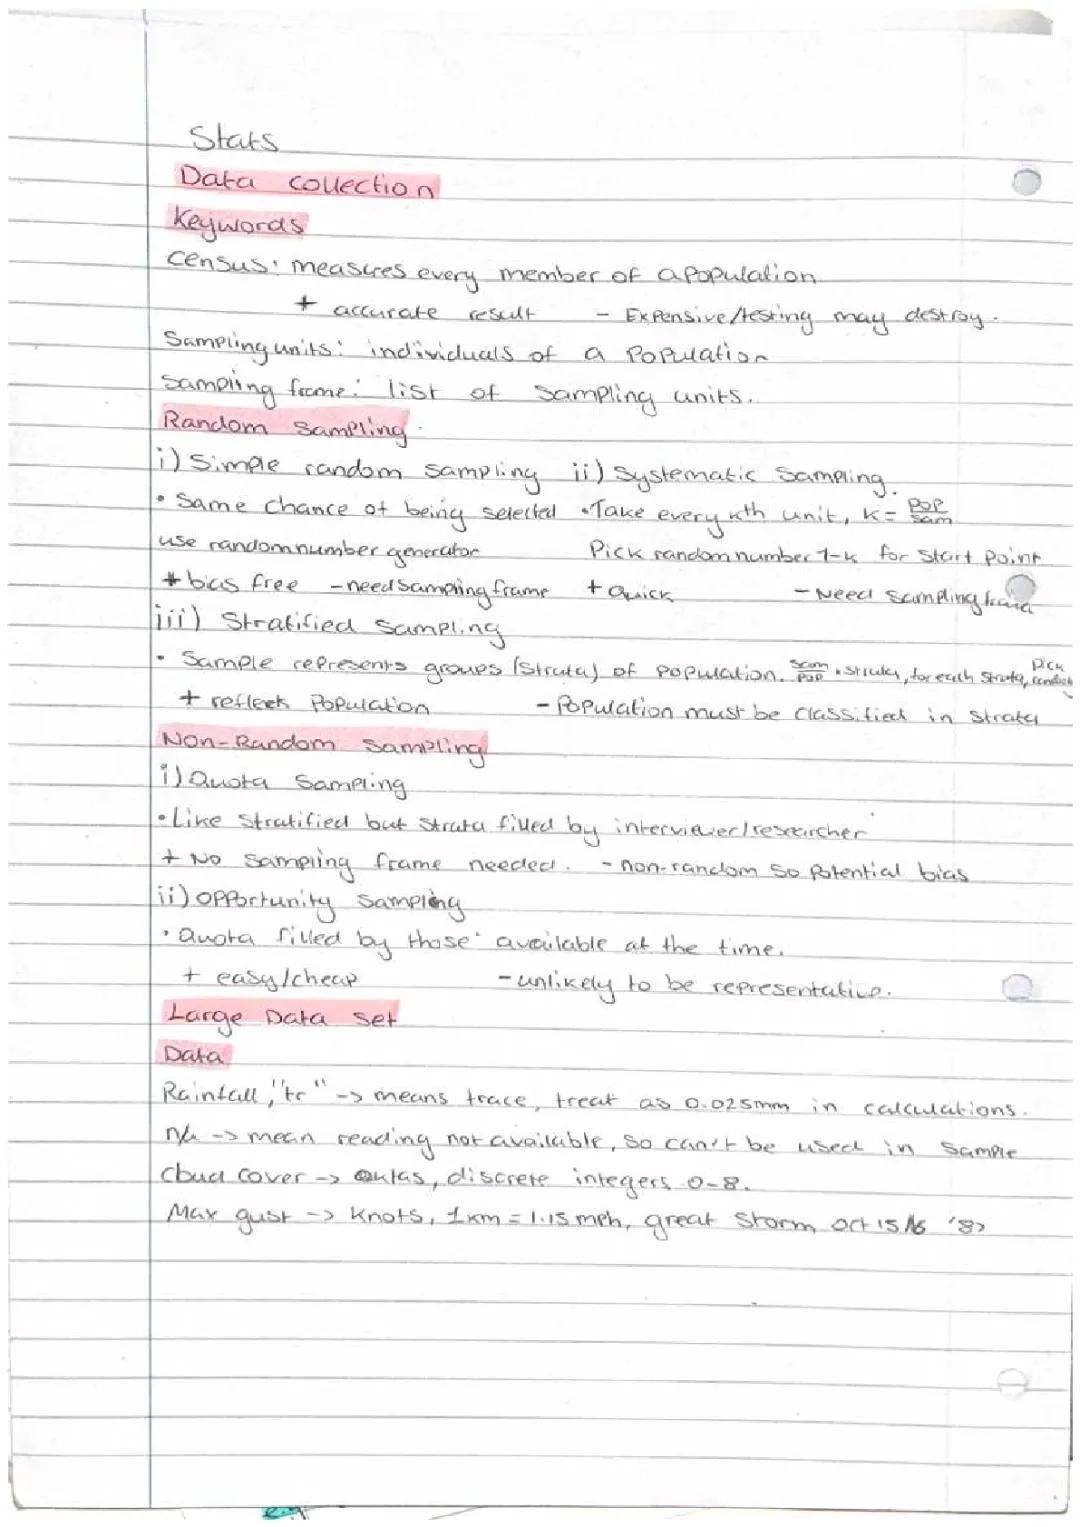 Stats
Data collection
Keywords
Census: measures every member of a population
+ accurate result - Expensive/testing may destroy.
Sampling units: individuals of a population
Sampling frame: list of sampling units.
Random Sampling.
i) Simple random sampling ii) Systematic Sampling.
• Same chance of being selected • Take every kth unit, K = Pop/Sam
use random number generator Pick random number 1-k for start point
+ bias free - need sampling frame + Quick - Need sampling frame
iii) Stratified sampling
• Sample represents groups (strata) of population. Sam/Pop • strata, for each strata, Pick
+ reflects Population - Population must be classified in strata
Non-Random Sampling
i) Quota Sampling
• Like stratified but strata filled by interviewer/researcher
+ No sampling frame needed. - non-random so potential bias
ii) Opportunity sampling
• Quota filled by those available at the time.
+ easy/cheap - unlikely to be representative.
Large Data set
Data
Rainfall, "tr" -> means trace, treat as 0.025mm in calculations.
n/a -> mean reading not available, so can't be used in sample
Cloud cover -> oktas, discrete integers 0-8.
Max gust -> Knots, 1km = 1.15 mph, great storm Oct 15/16 '87
e.g